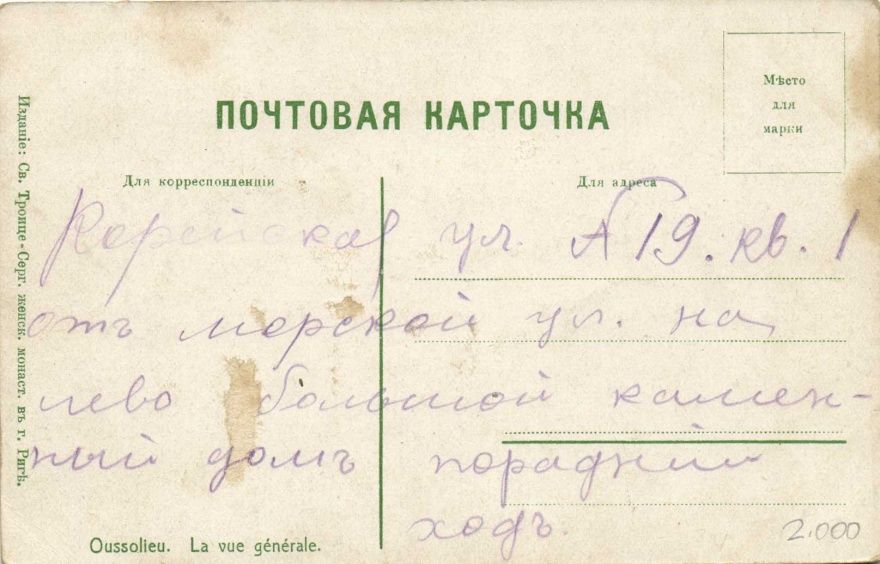 ПОЧТОВАЯ КАРТОЧКА
Мѣсто
для
марки
Для корреспонденціи
Для адреса
Корейская ул. № 19. кв. 1
отъ морской ул. на
лево большой камен-
ный домъ порадний
ходъ.
Oussolieu. La vue générale.
2.000
Изданіе: Св. Троице-Серг. женск. монаст. въ г. Ригѣ.